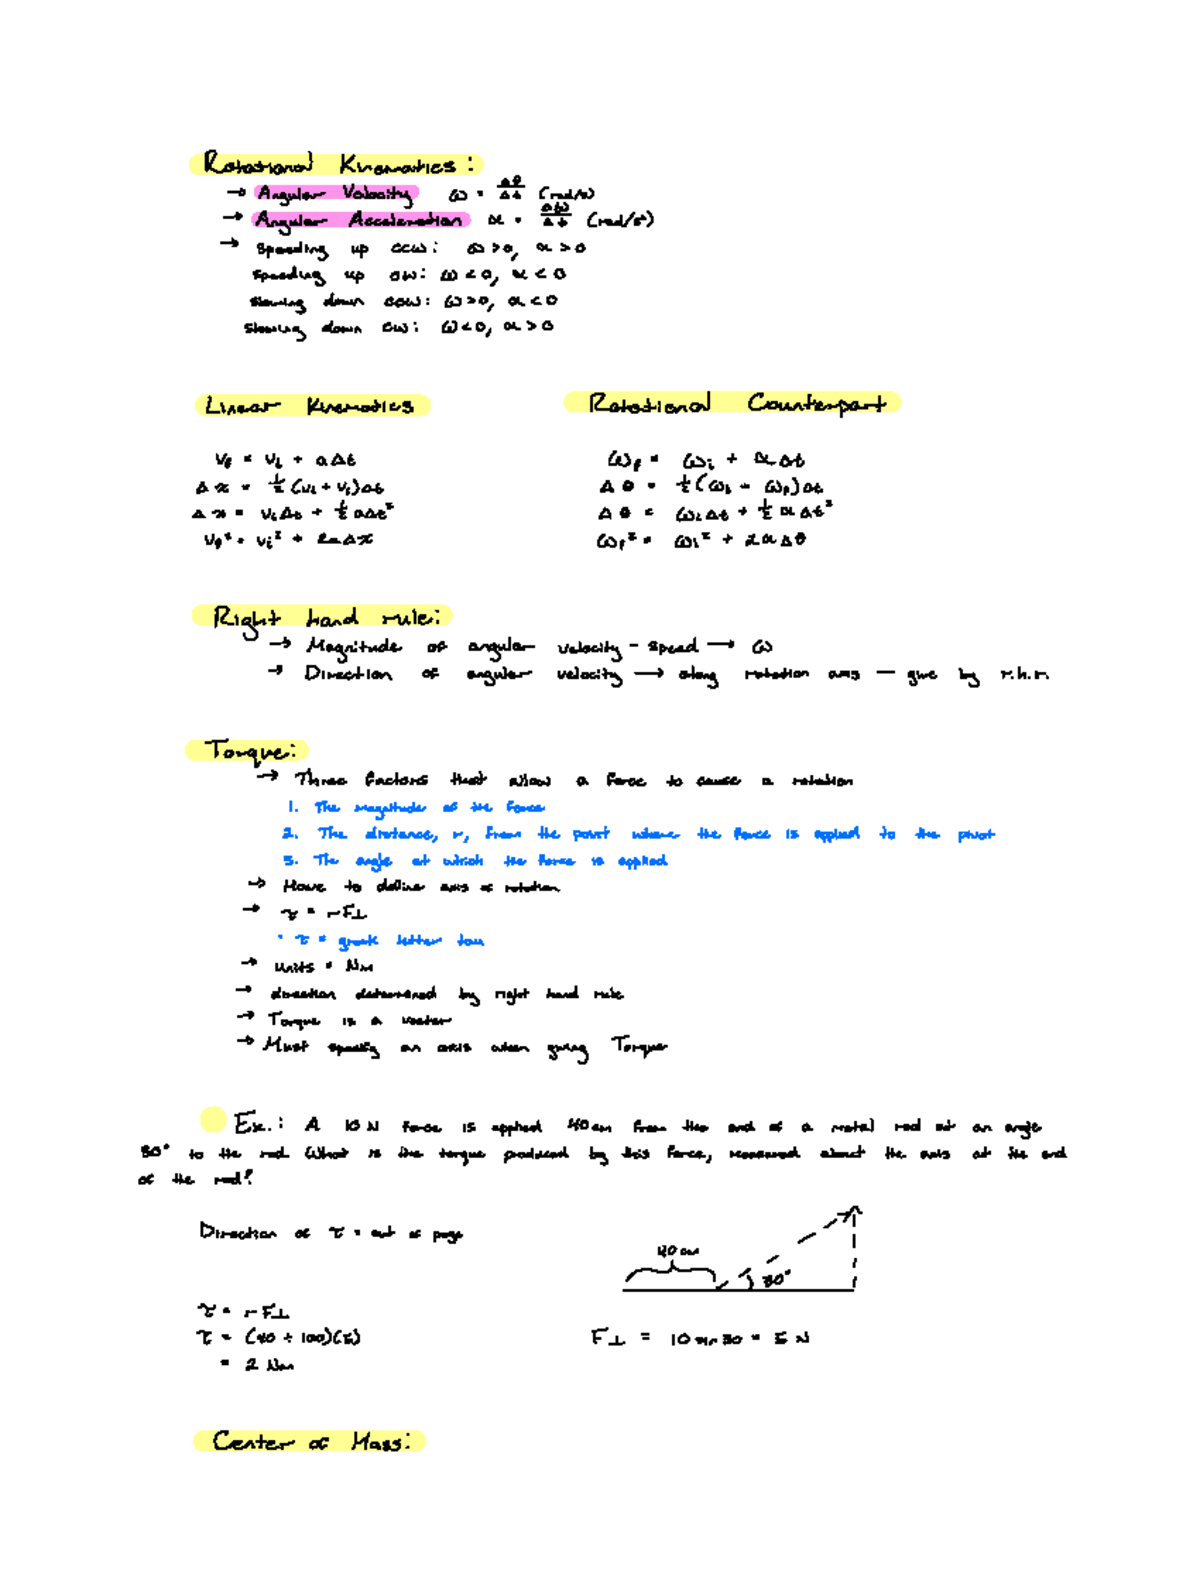 Rotational Kinematics:
→ Angular Velocity ω = Δθ/Δt (rad/s)
→ Angular Acceleration α = Δω/Δt (rad/s²)
→ Speeding up ccw: ω > 0, α > 0
Speeding up cw: ω < 0, α < 0
Slowing down ccw: ω > 0, α < 0
Slowing down cw: ω < 0, α > 0
Linear Kinematics
Rotational Counterpart
Vf = Vi + aΔt
ωf = ωi + αΔt
Δx = ½(Vi + Vf)Δt
Δθ = ½(ωi + ωf)Δt
Δx = ViΔt + ½aΔt²
Δθ = ωiΔt + ½αΔt²
Vf² = Vi² + 2aΔx
ωf² = ωi² + 2αΔθ
Right hand rule:
→ Magnitude of angular velocity - speed → ω
→ Direction of angular velocity → along rotation axis — give by r.h.r.
Torque:
→ Three factors that allow a force to cause a rotation
1. The magnitude of the force
2. The distance, r, from the point where the force is applied to the pivot
3. The angle at which the force is applied
→ Have to define axis of rotation
→ τ = rF⊥
• τ = greek letter tau
→ units = Nm
→ direction determined by right hand rule
→ Torque is a vector
→ Must specify an axis when giving Torque
Ex.: A 10 N force is applied 40cm from the end of a metal rod at an angle
30° to the rod. What is the torque produced by this force, measured about the axis at the end
of the rod?
Direction of τ = out of page
40 cm
30°
τ = rF⊥
τ = (40 ÷ 100)(5)
F⊥ = 10 sin 30 = 5 N
= 2 Nm
Center of Mass: